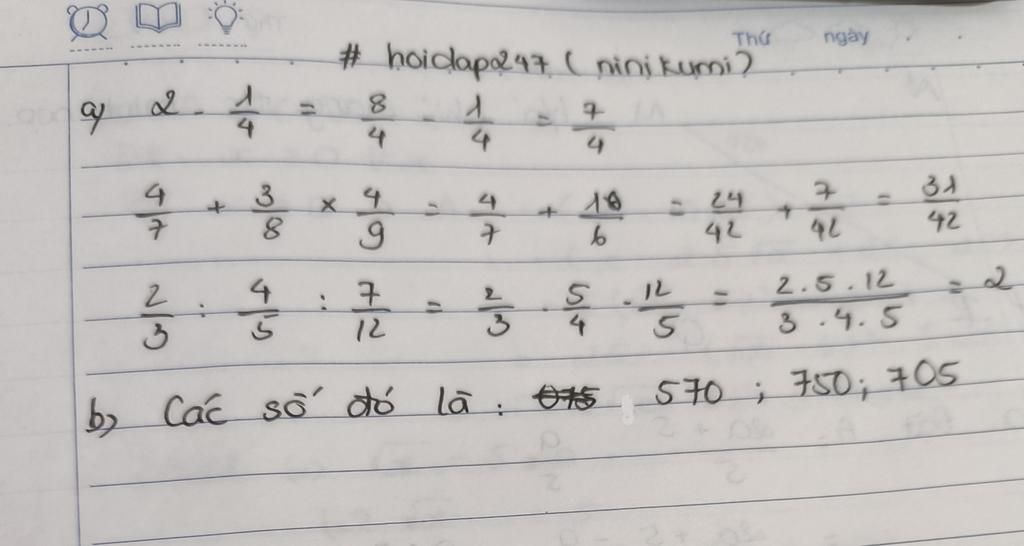 Thứ ngày
# hoidap247 (ninikumi)
a) 2 - 1/4 = 8/4 - 1/4 = 7/4
4/7 + 3/8 × 4/9 = 4/7 + 1/6 = 24/42 + 7/42 = 31/42
2/3 : 4/5 : 7/12 = 2/3 . 5/4 . 12/5 = 2.5.12/3.4.5 = 2
b) Các số đó là : 570 ; 750; 705